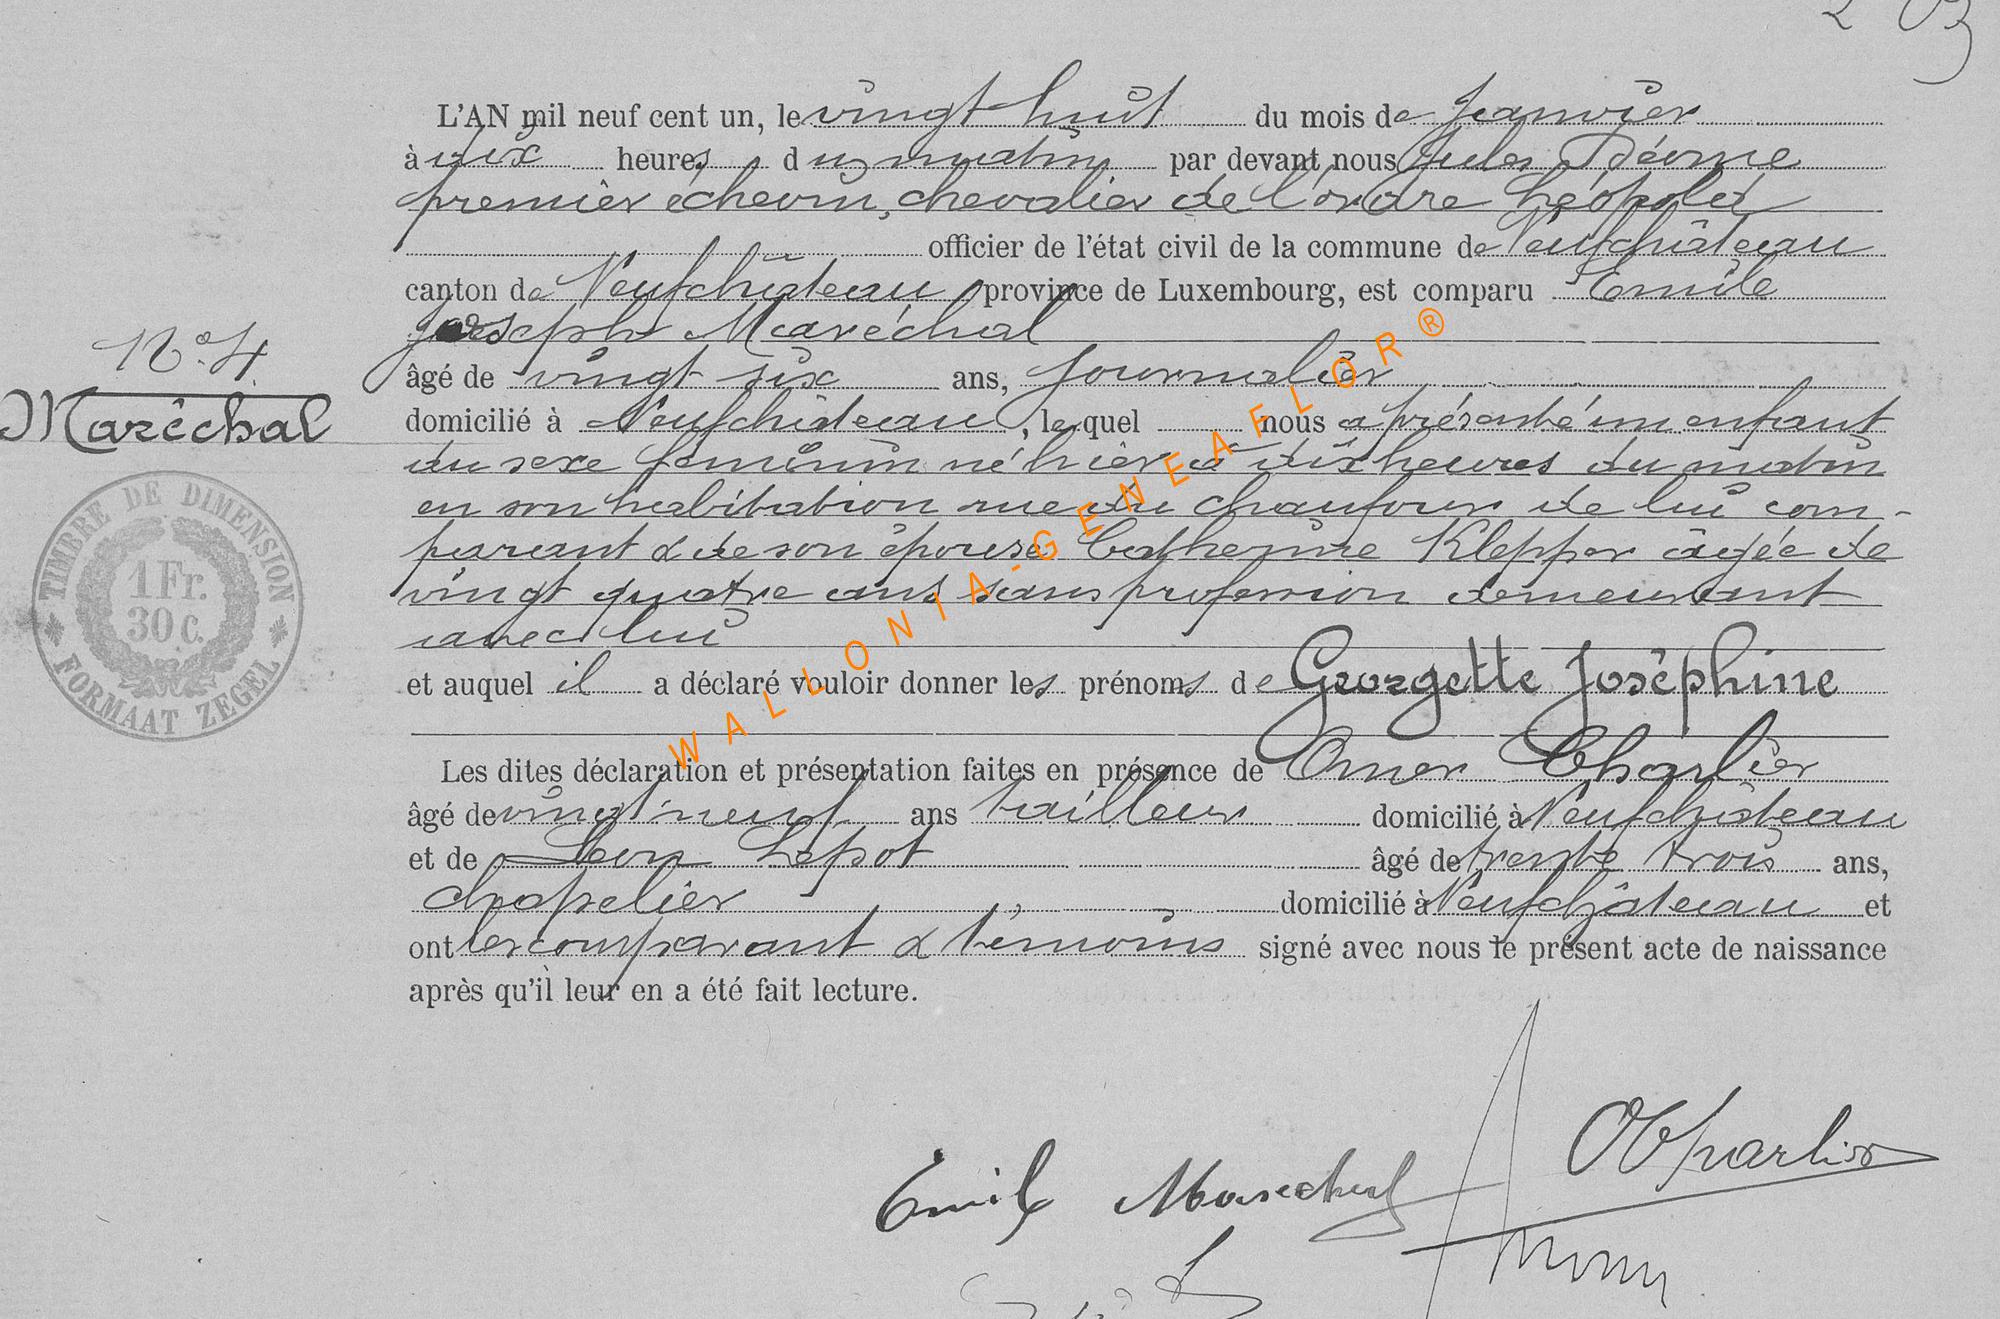 203
L'AN mil neuf cent un, le vingt huit du mois de Janvier
à dix heures du matin par devant nous Jules
premier échevin, chevalier de l'ordre Léopold
officier de l'état civil de la commune de Neufchâteau
canton de Neufchâteau province de Luxembourg, est comparu Emile
Joseph Maréchal
N° 4
Maréchal
âgé de vingt six ans, journalier
domicilié à Neufchâteau, lequel nous a présenté un enfant
du sexe féminin né hier à dix heures du matin
en son habitation rue du chaufour de lui com-
parant & de son épouse Catherine Klepper âgée de
vingt quatre ans sans profession demeurant
avec lui
et auquel il a déclaré vouloir donner les prénoms de Georgette Joséphine
Les dites déclaration et présentation faites en présence de Omer Charlier
âgé de vingt neuf ans tailleur domicilié à Neufchâteau
et de Léon Lepot âgé de trente trois ans,
chapelier, domicilié à Neufchâteau et
ont les comparant & témoins signé avec nous le présent acte de naissance
après qu'il leur en a été fait lecture.
TIMBRE DE DIMENSION
1 Fr.
30 c.
FORMAAT ZEGEL
WALLONIA-GENEAFLOR®
OCharlier
Emile Marechal